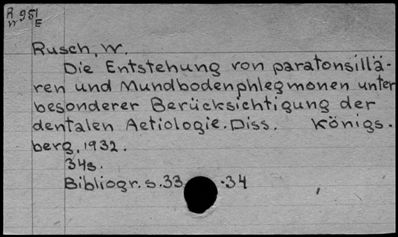 R 981
W E
Rusch, W.
Die Entstehung von paratonsillä-
ren und Mundbodenphlegmonen unter
besonderer Berücksichtigung der
dentalen Aetiologie. Diss. Königs-
berg, 1932.
34s.
Bibliogr. s.33-34